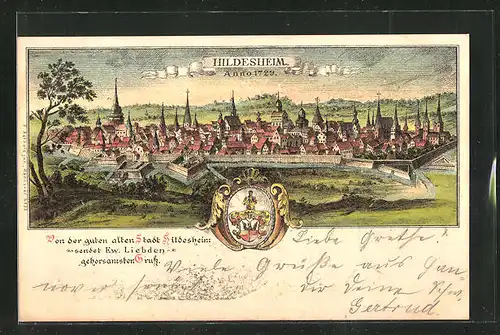 HILDESHEIM.
Anno 1729.
Von der guten alten Stadt Hildesheim
sendet Ew. Liebden
gehorsamsten Gruß.
Liebe Grethe!
Viele Grüße aus Han
nover sendet dir deine Schw.
Gertrud.